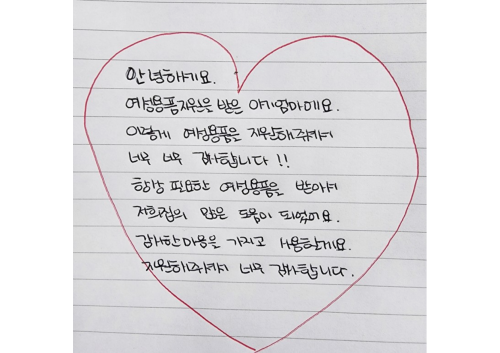 안녕하세요.
여성용품지원을 받은 아기엄마에요.
이렇게 여성용품을 지원해주셔서
너무 너무 감사합니다!!
항상 필요한 여성용품을 받아서
저희집의 많은 도움이 되었어요.
감사한마음을 가지고 사용할게요.
지원해주셔서 너무 감사합니다.